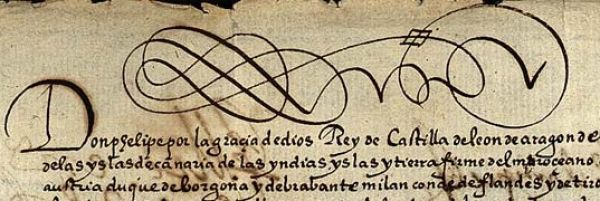 Donphelipe por la gracia de dios Rey de Castilla de leon de aragon de
de las yslas de canaria de las yndias yslas y tierra firme del mar oceano
austria duque de borgoña y de brabante milan conde de flandes y de tirol